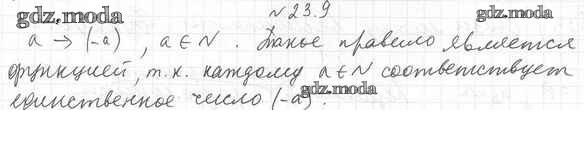 № 23.9
gdz.moda
gdz.moda
a → (-a), a ∈ N. Такое правило является
функцией, т.к. каждому a ∈ N соответствует
единственное число (-a).
gdz.moda